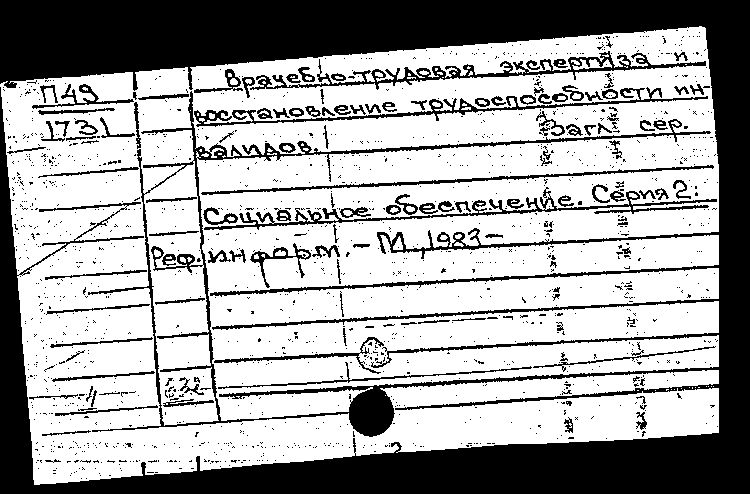 П49
1731
Врачебно-трудовая экспертиза и
восстановление трудоспособности ин-
валидов. Загл. сер.
Социальное обеспечение. Серия 2:
Реф. информ. – М., 1983–
632